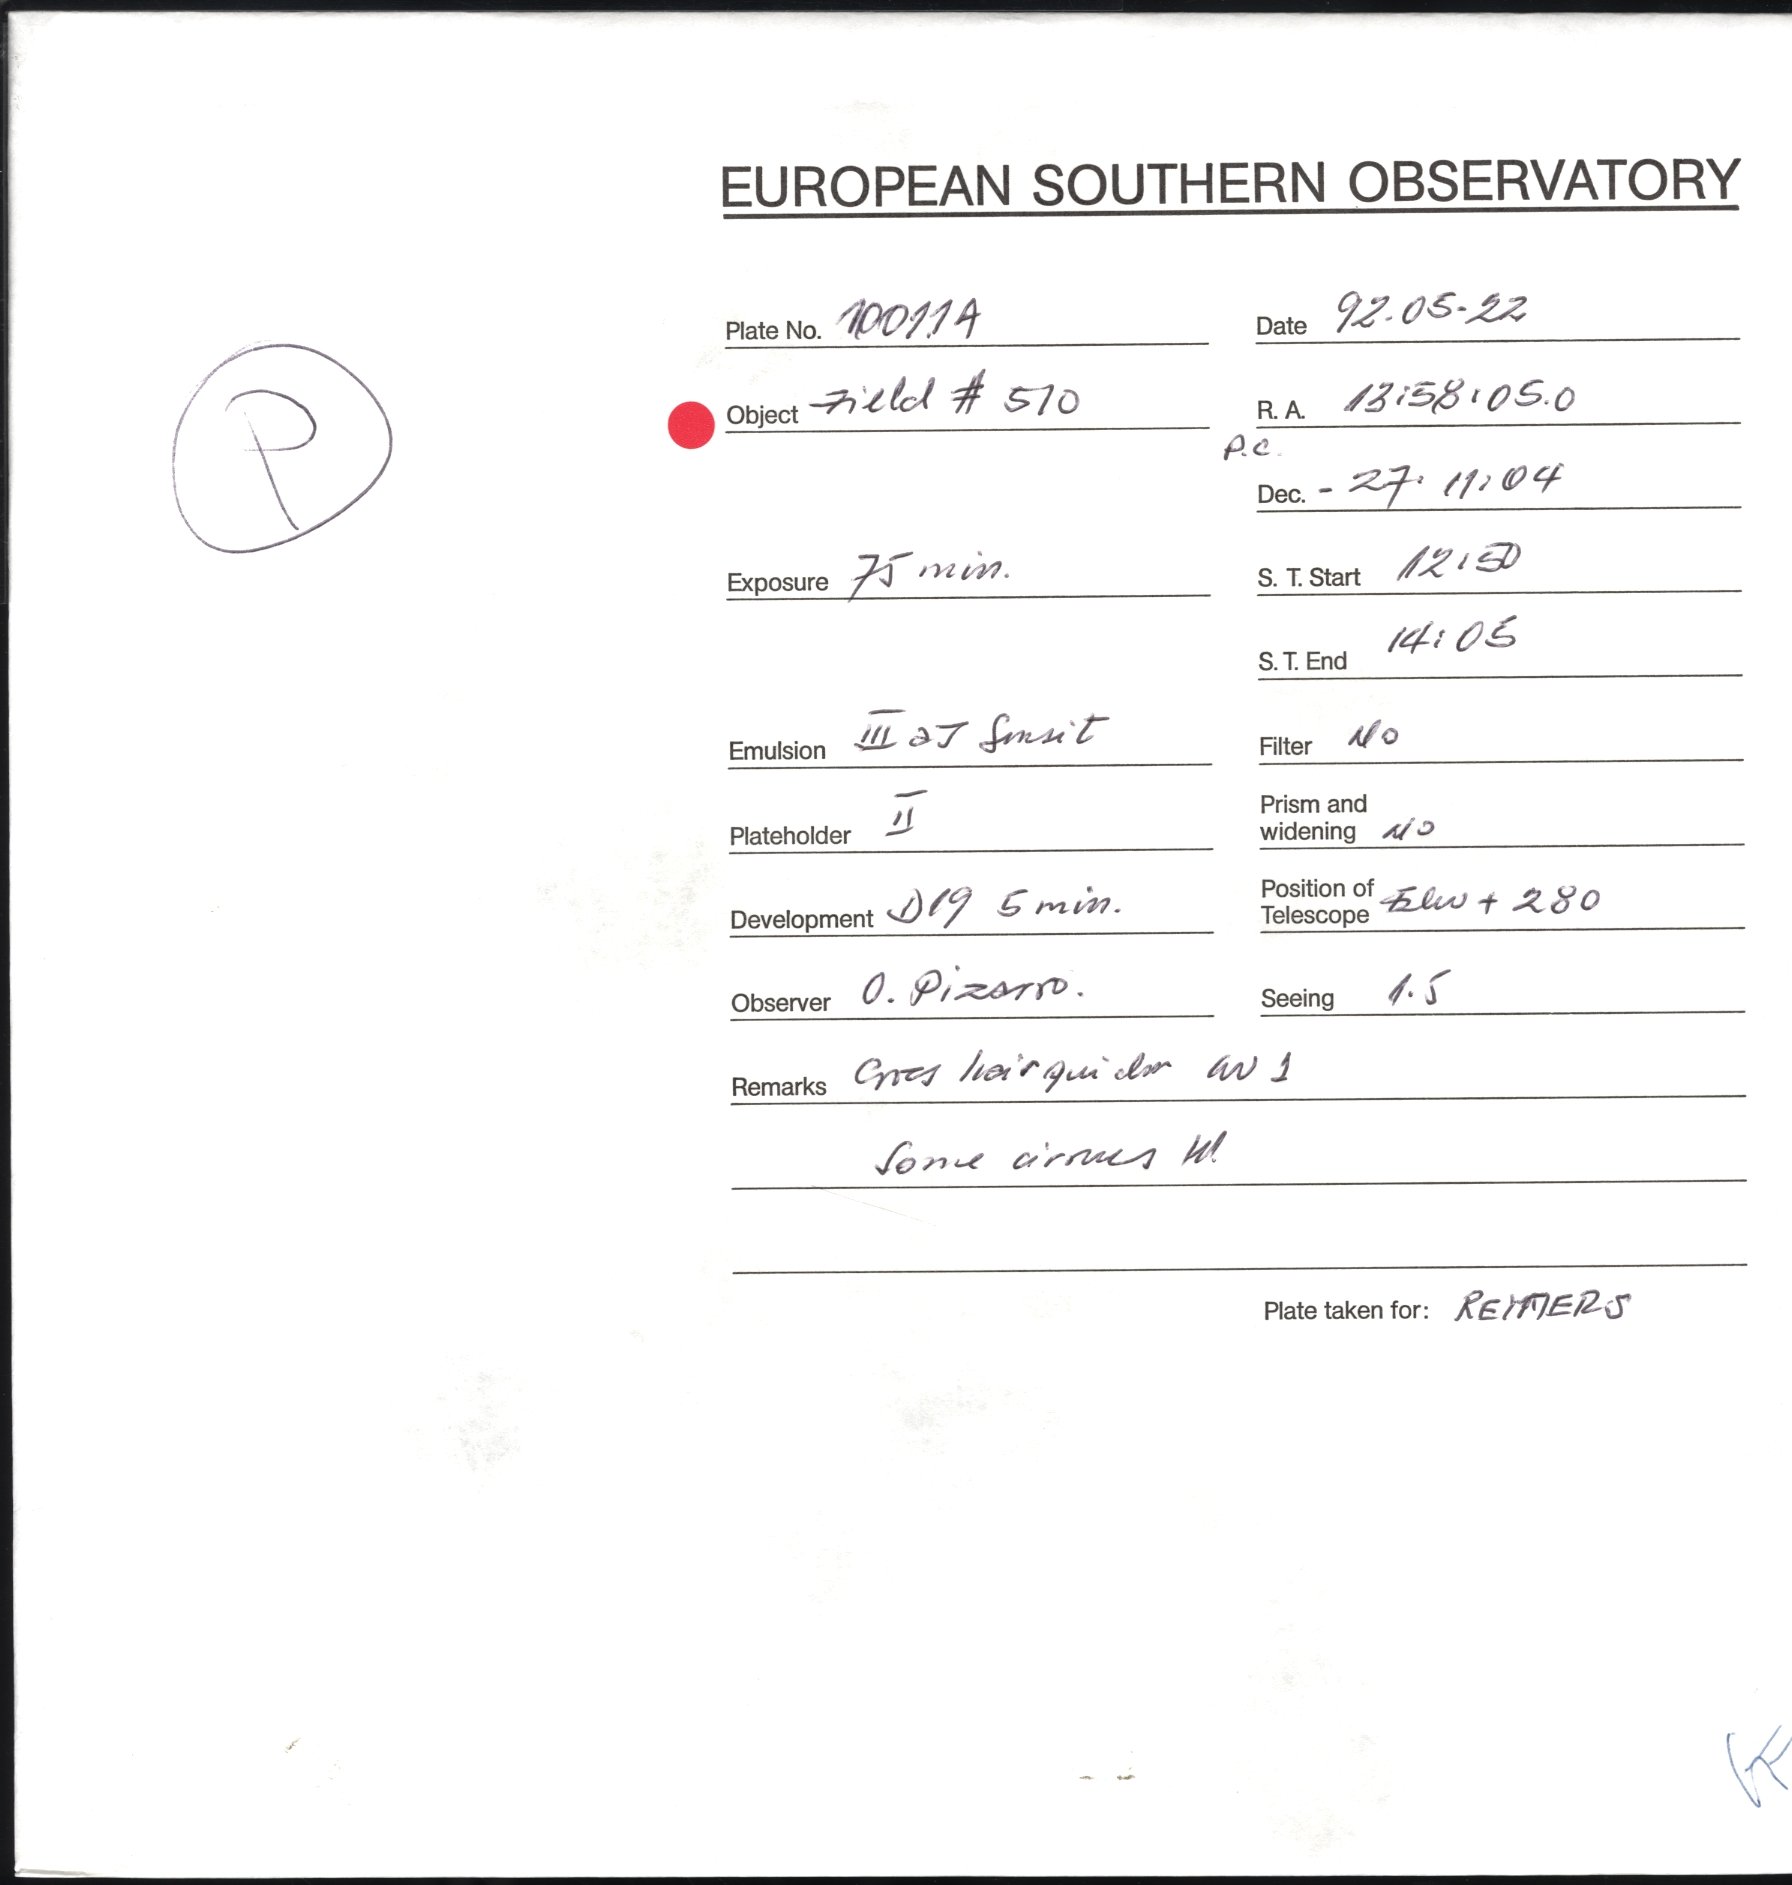 EUROPEAN SOUTHERN OBSERVATORY
Plate No. 10011A Date 92.05.22
P
Object Field # 510 R. A. 13:58:05.0
P.C.
Dec. - 27: 11: 04
Exposure 75 min. S. T. Start 12:50
S. T. End 14:05
Emulsion III aJ Sensit Filter No
Plateholder II Prism and
widening No
Development D19 5 min. Position of
Telescope + 280
Observer O. Pizarro. Seeing 1.5
Remarks Cross hair guider 1
Some cirrues
Plate taken for: REIMERS